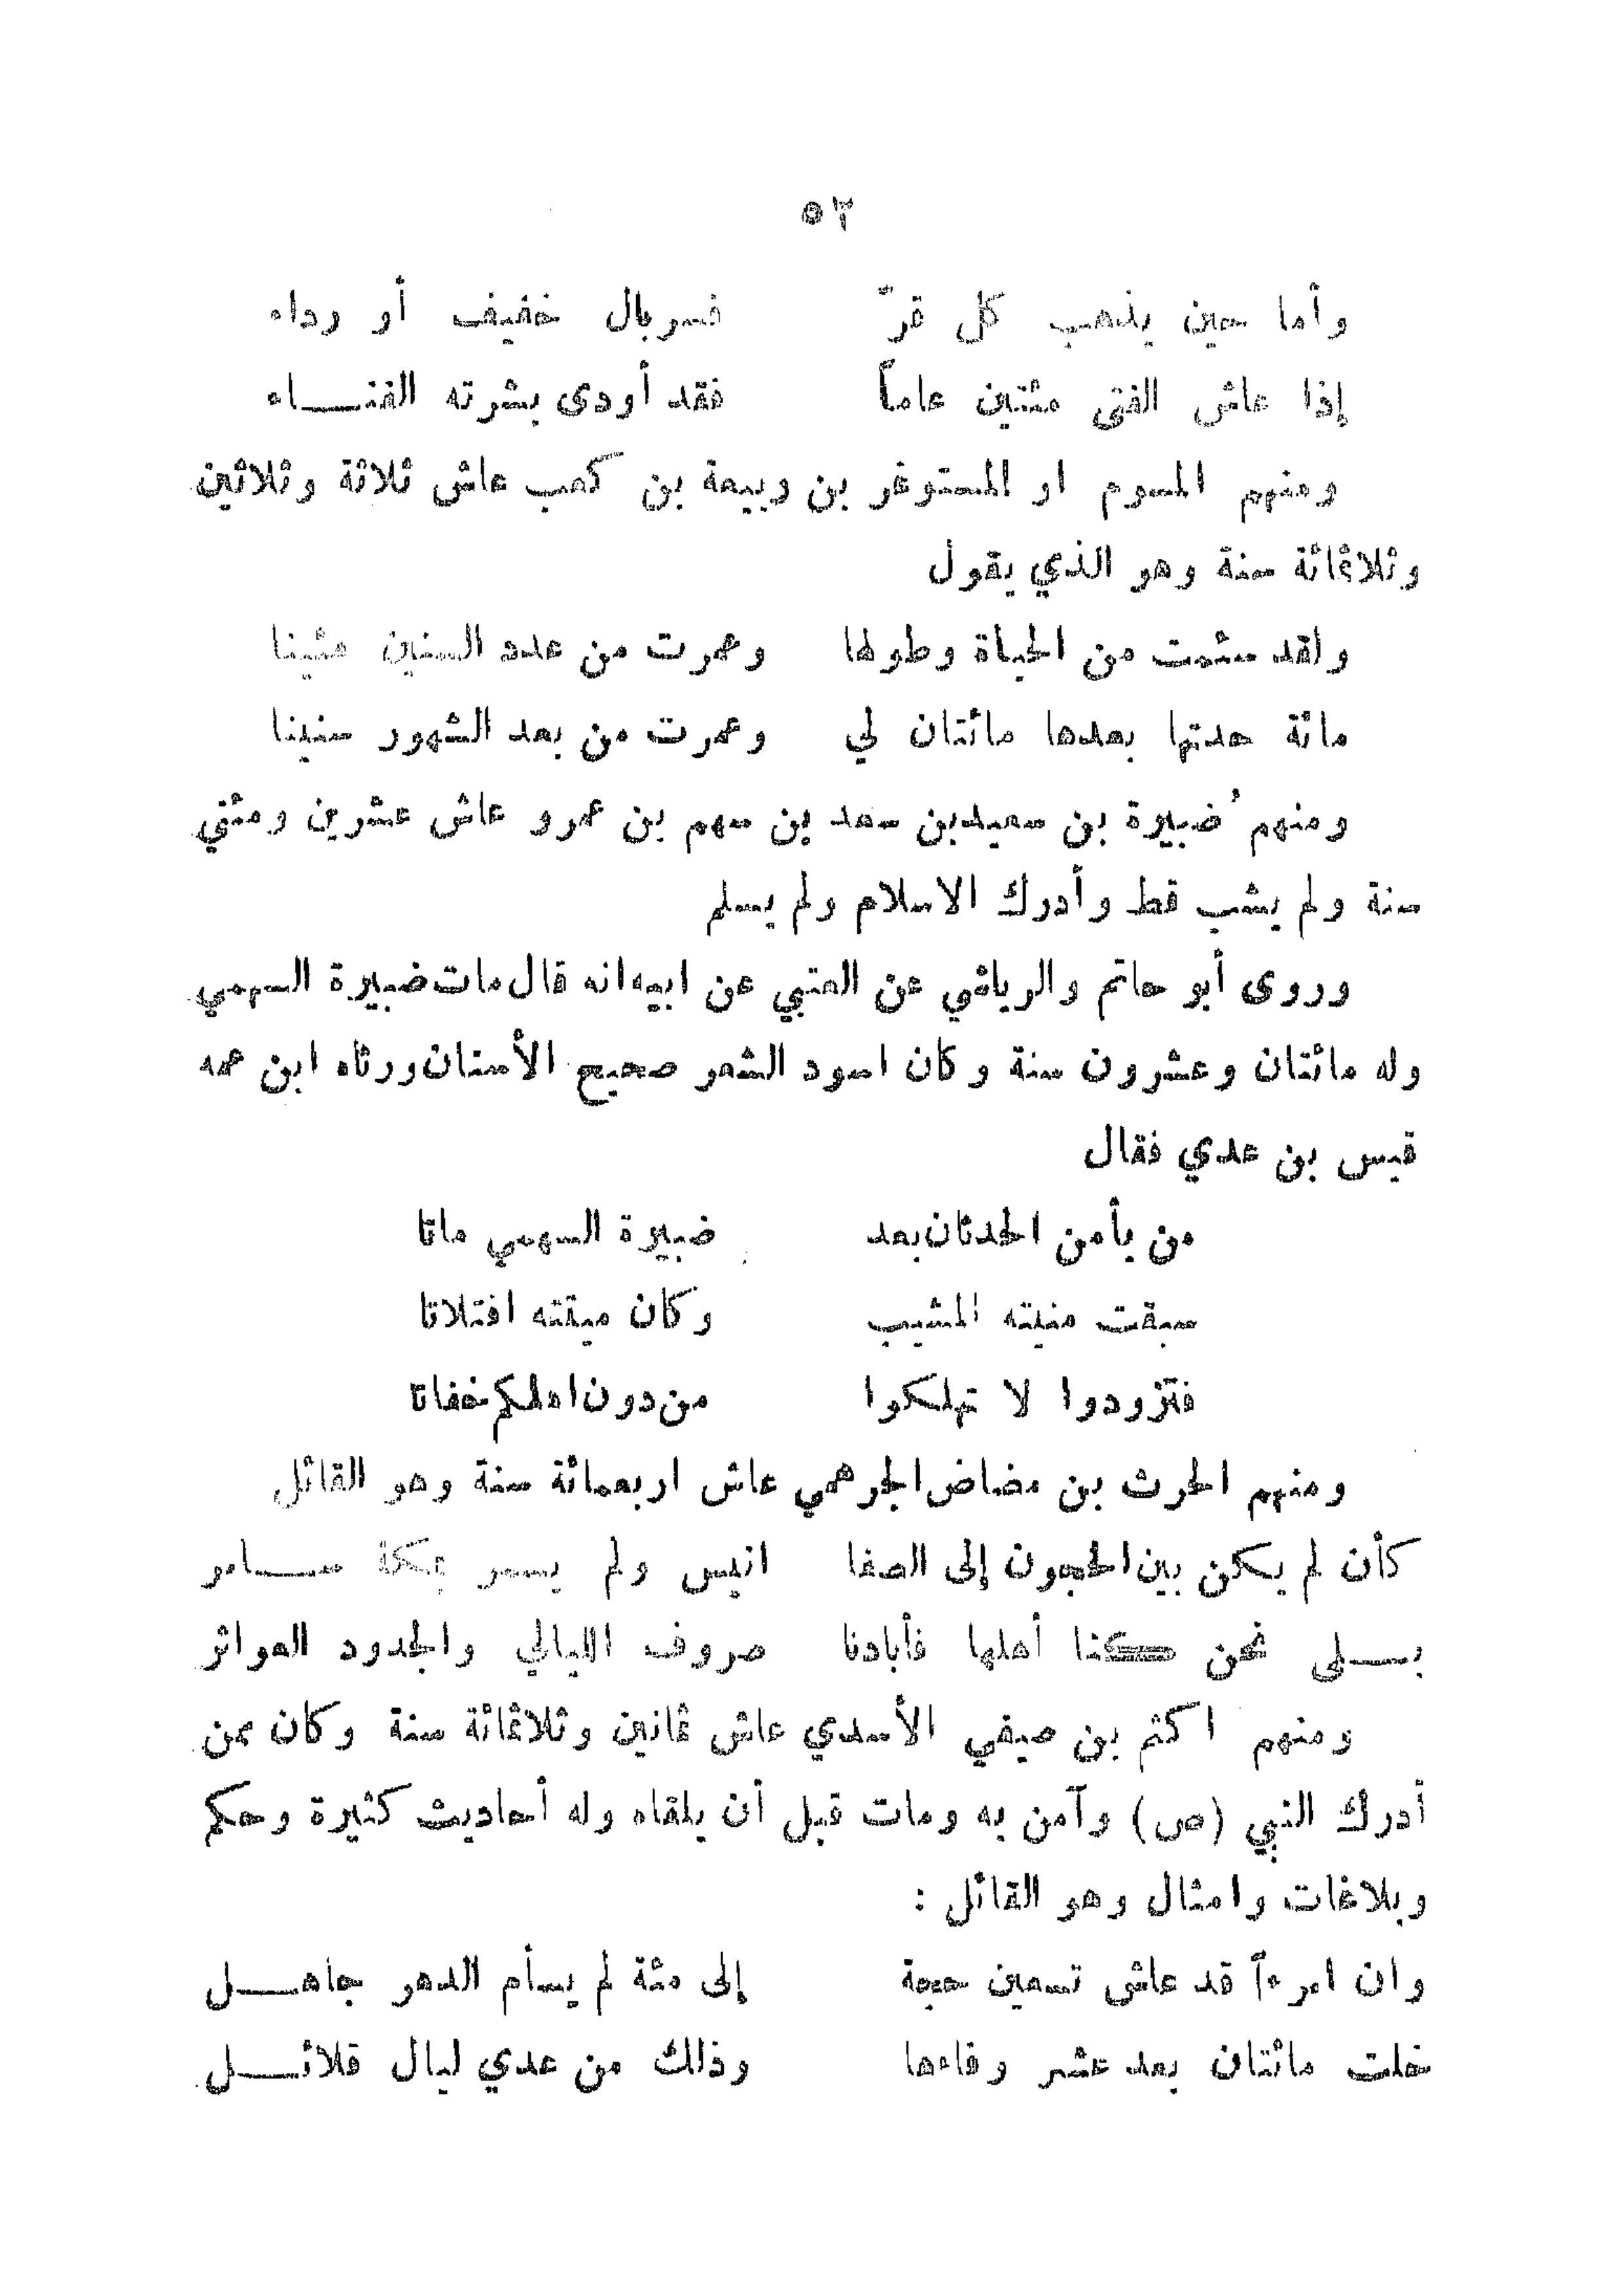 ٥٣
وأما حين يذهب كل قرّ فسربال خفيف أو رداء
إذا عاش الفتى مئتين عاماً فقد أودى بشرته الفنـــاء
ومنهم المسوم او المستوغر بن وبيعة بن كعب عاش ثلاثة وثلاثين
وثلاثمائة سنة وهو الذي يقول
ولقد سئمت من الحياة وطولها وعمرت من عدد السنين مئينا
مائة حدتها بعدها مائتان لي وعمرت من بعد الشهور سنينا
ومنهم ُضبيرة بن سعيدبن سعد بن سهم بن عمرو عاش عشرين ومئتي
سنة ولم يشب قط وأدرك الاسلام ولم يسلم
وروى أبو حاتم والرياشي عن العتبي عن ابيه انه قال مات ضبيرة السهمي
وله مائتان وعشرون سنة وكان اسود الشعر صحيح الأسنان ورثاه ابن عمه
قيس بن عدي فقال
من يأمن الحدثان بعد ضبيرة السهمي ماتا
سبقت منيته المشيب وكان ميتته افتلاتا
فتزودوا لا تهلكوا من دون اهلكم خفاتا
ومنهم الحرث بن مضاض الجرهمي عاش اربعمائة سنة وهو القائل
كأن لم يكن بين الحجون إلى الصفا انيس ولم يسمر بمكة ســـامر
بـــلى نحن كنا أهلها فأبادنا صروف الليالي والجدود العواثر
ومنهم اكثم بن صيفي الأسدي عاش ثمانين وثلاثمائة سنة وكان ممن
أدرك النبي (ص) وآمن به ومات قبل أن يلقاه وله أحاديث كثيرة وحكم
وبلاغات وامثال وهو القائل :
وان امرءاً قد عاش تسعين حجة إلى مئة لم يسأم الدهر جاهـــل
خلت مائتان بعد عشر وفاءها وذلك من عدي ليال قلائـــل